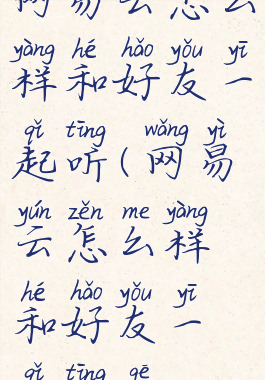 网易云怎么
yàng hé hǎo yǒu yī
样和好友一
qǐ tīng wǎng yì
起听(网易
yún zěn me yàng
云怎么样
hé hǎo yǒu yī
和好友一
qǐ tīng gē